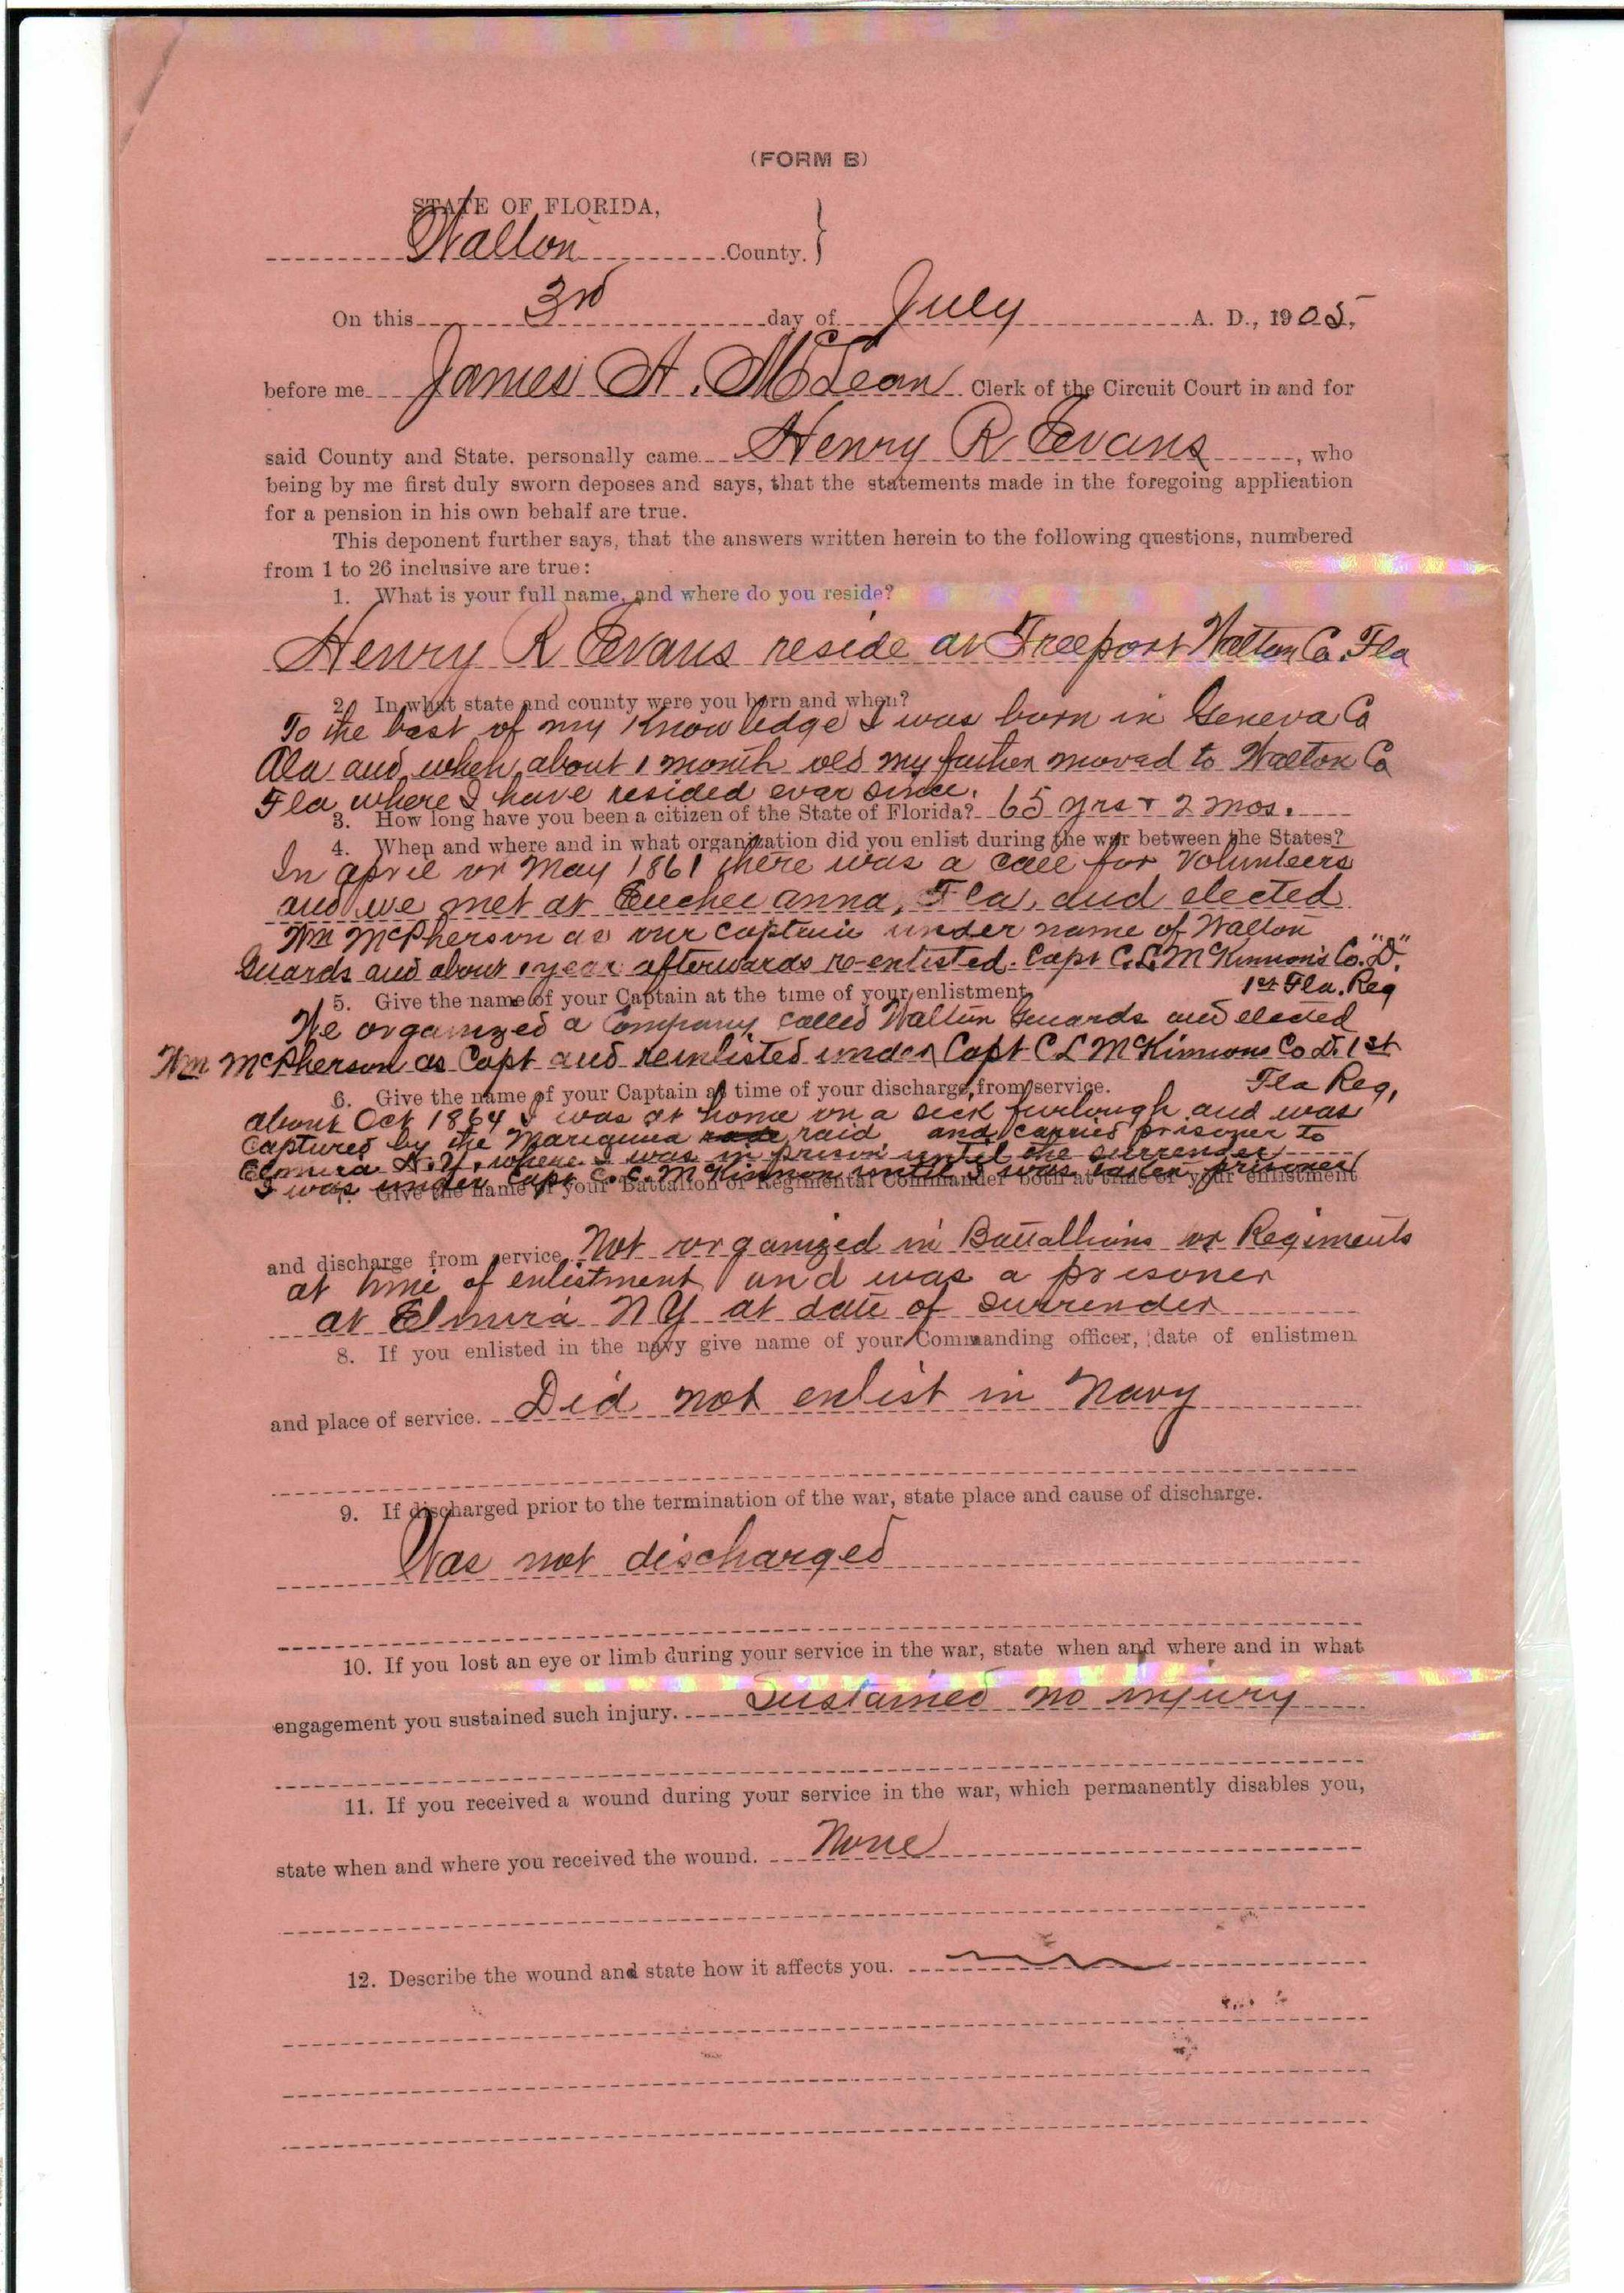 (FORM B)
STATE OF FLORIDA,
Walton County. }
On this 3rd day of July A. D., 1905,
before me James A. McLean Clerk of the Circuit Court in and for
said County and State. personally came Henry R Evans, who
being by me first duly sworn deposes and says, that the statements made in the foregoing application
for a pension in his own behalf are true.
This deponent further says, that the answers written herein to the following questions, numbered
from 1 to 26 inclusive are true:
1. What is your full name, and where do you reside?
Henry R Evans reside at Freeport Walton Co. Fla
2. In what state and county were you born and when?
To the best of my knowledge I was born in Geneva Co
Ala and when about 1 month old my father moved to Walton Co
Fla where I have resided ever since.
3. How long have you been a citizen of the State of Florida? 65 yrs + 2 mos.
4. When and where and in what organization did you enlist during the war between the States?
In april or May 1861 there was a call for Volunteers
and we met at Euchee anna, Fla, and elected
Wm McPherson as our captain under name of Walton
Guards and about 1 year afterwards re-enlisted. Capt C. L. McKinnon's Co. "D".
1st Fla. Reg
5. Give the name of your Captain at the time of your enlistment
We organized a Company called Walton Guards and elected
Wm McPherson as Capt and reinlisted under Capt C L McKinnons Co D. 1st
Fla Reg,
6. Give the name of your Captain at time of your discharge, from service.
about Oct 1864 I was at home on a sick furlough and was
captured by the Marianna raid, and carried prisoner to
Elmira N.Y. where I was in prison until the surrender
I was under Capt C. L. McKinnon until I was taken prisoner
7. Give the name of your Battalion or Regimental Commander both at time of your enlistment
and discharge from service. Not organized in Battallions or Regiments
at time of enlistment and was a prisoner
at Elmira NY at date of surrender
8. If you enlisted in the navy give name of your Commanding officer, date of enlistmen
and place of service. Did not enlist in Navy
9. If discharged prior to the termination of the war, state place and cause of discharge.
Was not discharged
10. If you lost an eye or limb during your service in the war, state when and where and in what
engagement you sustained such injury. Sustained no injury
11. If you received a wound during your service in the war, which permanently disables you,
state when and where you received the wound. None
12. Describe the wound and state how it affects you.